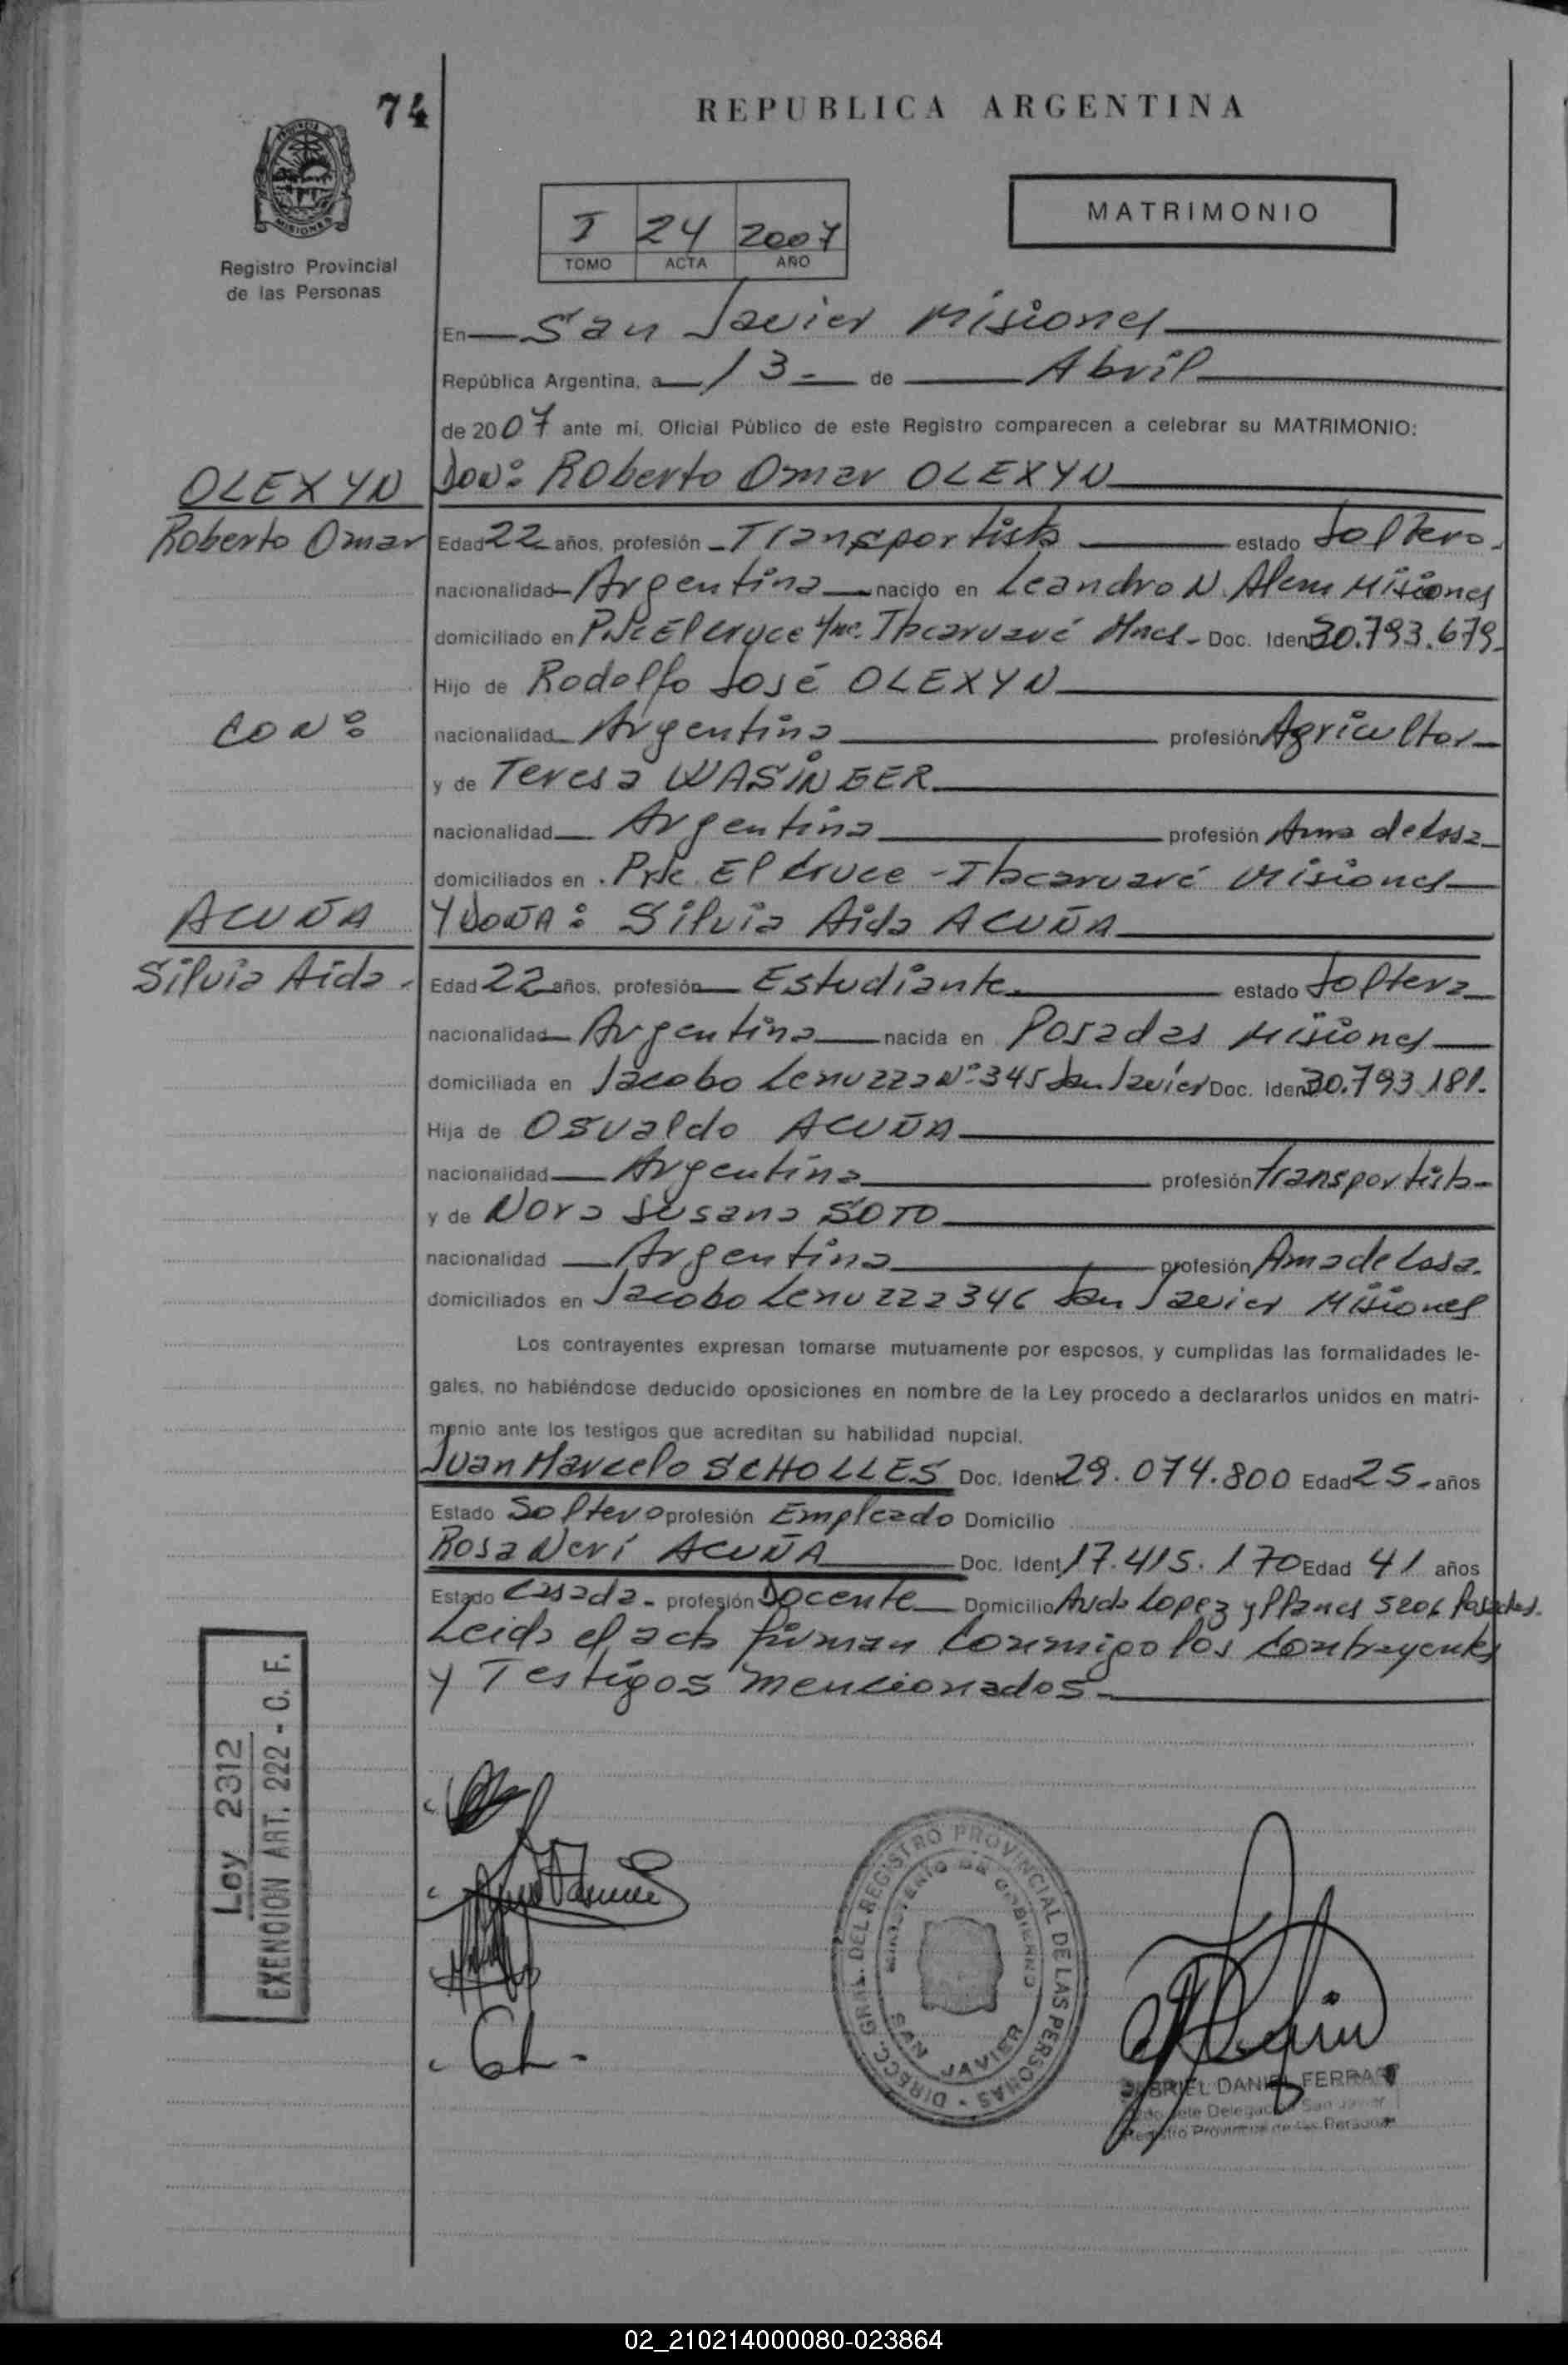 74
REPUBLICA ARGENTINA
PROVINCIA DE
MISIONES
Registro Provincial
de las Personas
I 24 2007
TOMO ACTA AÑO
MATRIMONIO
En San Javier Misiones
República Argentina, a 13 de Abril
de 2007 ante mi, Oficial Público de este Registro comparecen a celebrar su MATRIMONIO:
OLEXYN
Roberto Omar
DON: Roberto Omar OLEXYN
Edad 22 años, profesión Transportista estado Soltero
nacionalidad Argentina nacido en Leandro N. Alem Misiones
domiciliado en Pje El Cruce Itacaruaré Mnes Doc. Ident 30.793.679
Hijo de Rodolfo José OLEXYN
CON:
nacionalidad Argentina profesión Agricultor
y de Teresa WASINGER
nacionalidad Argentina profesión Ama de Casa
domiciliados en Pje El Cruce - Itacaruaré Misiones
ACUÑA
Silvia Aida
Y DOÑA: Silvia Aida ACUÑA
Edad 22 años, profesión Estudiante estado Soltera
nacionalidad Argentina nacida en Posadas Misiones
domiciliada en Jacobo Lenuzza Nº 345 San Javier Doc. Ident 30.793.181.
Hija de Osvaldo ACUÑA
nacionalidad Argentina profesión transportista
y de Nora Susana SOTO
nacionalidad Argentina profesión Ama de Casa.
domiciliados en Jacobo Lenuzza 346 San Javier Misiones
Los contrayentes expresan tomarse mutuamente por esposos, y cumplidas las formalidades le-
gales, no habiéndose deducido oposiciones en nombre de la Ley procedo a declararlos unidos en matri-
monio ante los testigos que acreditan su habilidad nupcial.
Juan Marcelo SCHOLLES Doc. Ident 29.074.800 Edad 25 años
Estado Soltero profesión Empleado Domicilio
Rosa Nerí ACUÑA Doc. Ident 17.415.170 Edad 41 años
Estado Casada profesión Docente Domicilio Avda Lopez y Planes 5206 Posadas.
Leida el acta firman conmigo los contrayentes
y Testigos mencionados
Ley 2312
EXENCION ART. 222 - C. F.
DIRECC. GRAL. DEL REGISTRO PROVINCIAL DE LAS PERSONAS
MINISTERIO DE GOBIERNO
SAN JAVIER
GABRIEL DANIEL
Delegación San Javier
Registro Provincial de las Personas
02_210214000080-023864